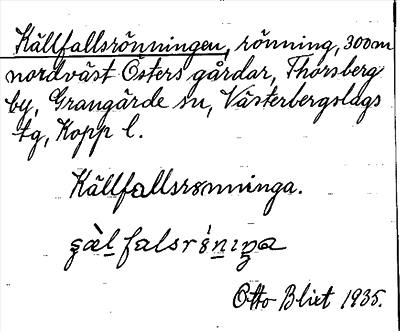 Källfallsrönningen, rönning, 300 m
nordväst Östers gårdar, Thorsberg
by, Grangärde sn, Västerbergslags
tg, Kopp l.
Källfallsrönninga.
Otto Blixt 1935.